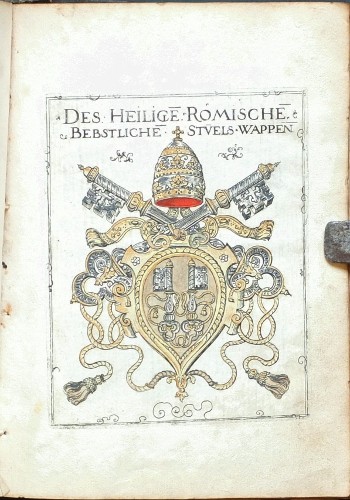 DES · HEILIGĒ · RÖMISCHĒ ·
BEBSTLICHĒ · STVELS · WAPPEN